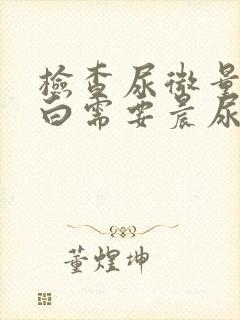 檢查尿微量
白需要晨尿
董煌坤